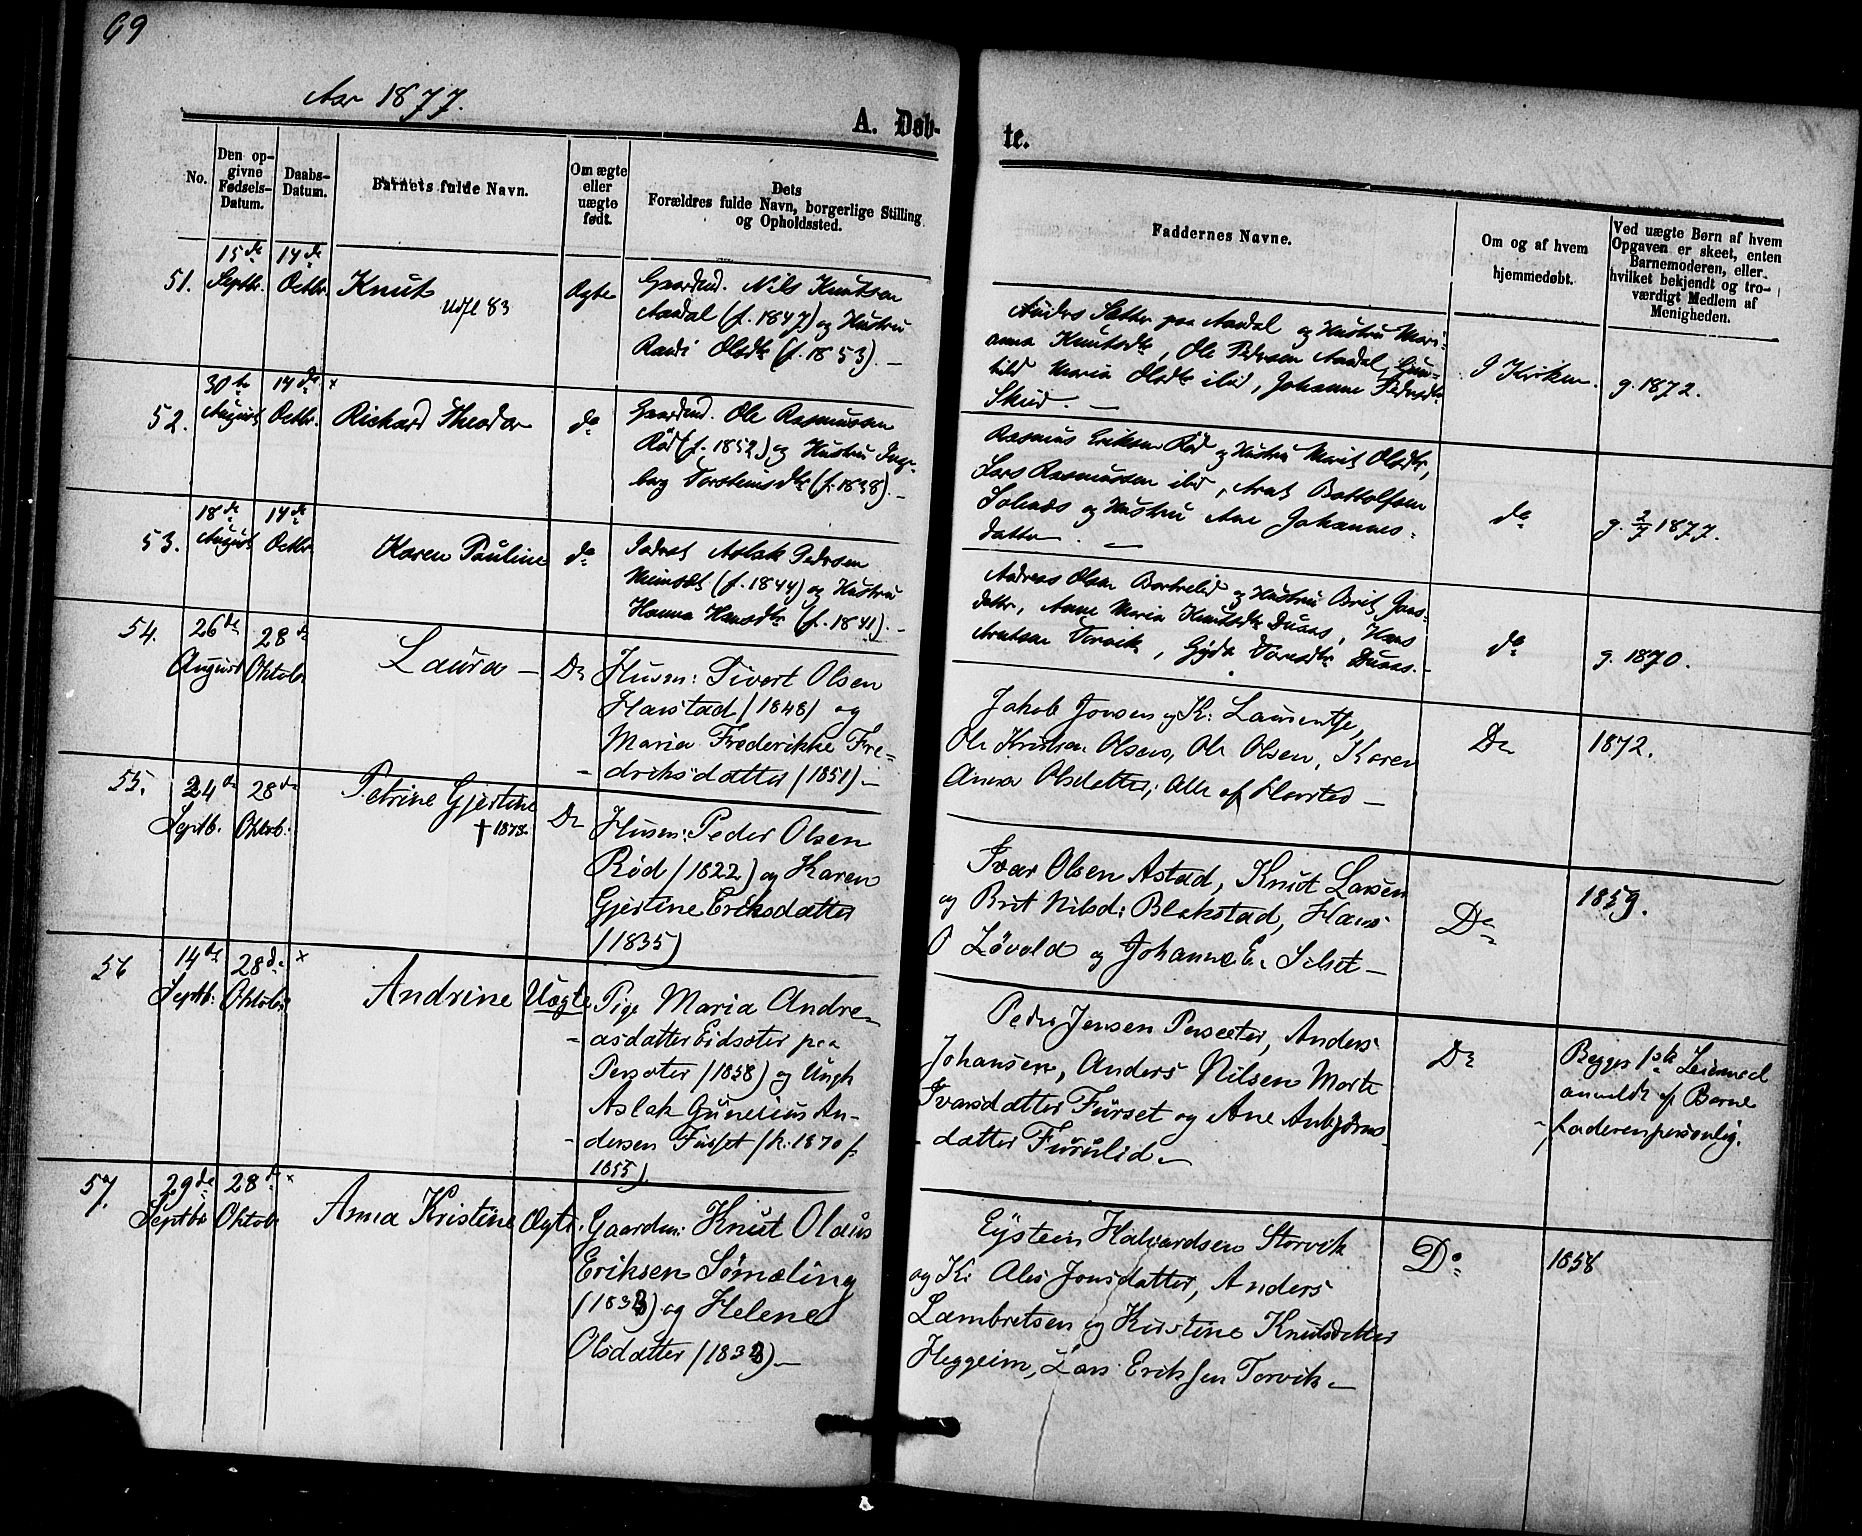 69
Aar 1877.
A. Døb-
te.
No.
Den op-
givne
Fødsels-
Datum.
Daabs-
Datum.
Barnets fulde Navn.
Om ægte
eller
uægte
født.
Dets
Forældres fulde Navn, borgerlige Stilling
og Opholdssted.
Faddernes Navne.
Om og af hvem
hjemmedøbt.
Ved uægte Børn af hvem
Opgaven er skeet, enten
Barnemoderen, eller
hvilket bekjendt og tro-
værdigt Medlem af
Menigheden.
51.
15de
Septbr.
14de
Octbr.
Knut
Udfl 83
Ægte
Gaardmd. Nils Knutsen
Aandal (f. 1847) og Hustru
Randi Olsdtr (f. 1853). —
Anders Sætter paa Aandal og Hustru Mari-
anna Knutsdtr, Ole Pedersen Aandal, Gun-
hild Maria Olsdtr ibid, Johanne Pedersdtr
Skud. —
I Kirken.
g. 1872.
52.
30te
August
14de
Octbr.
×
Richard Theodor
do
Gaardmd. Ole Rasmussen
Rød (f. 1852) og Hustru Inge-
borg Torsteinsdtr (f. 1838). —
Rasmus Eriksen Rød og Hustru Marit Olsdtr,
Lars Rasmussen ibid, Arnt Bottolfsen
og Hustru Ane Johannes-
datter. —
do
g. 2/7 1877.
53.
18de
August
14de
Octbr
Karen Pauline
do
Inderst Aslak Pedersen
(f. 1844) og Hustru
Hanna Hansdtr (f. 1841). —
Andreas Olsen og Hustru Brit Jons-
datter, Anne Maria Knutsdtr Duaas, Hans
Arntsen, Gyda Duaas. —
do
g. 1870.
54.
26de
August
28de
Oktob.
Laura —
Do
Husm: Sivert Olsen
Harstad (1848) og
Maria Frederikke Fre-
- driksdatter (1851) —
Jakob Jonsen og K: Laurentse,
Ole Kristian Olsen, Ole Olsen, Karen
Anna Olsdatter; Alle af Harstad —
Do
1872.
55.
24de
Septb.
28de
Oktob.
Petrine Gjertine
† 1878.
Do
Husm: Peder Olsen
Rød (1822) og Karen
Gjertine Eriksdatter
(1835)
Ivar Olsen Astad, Knut Larsen
og Brit Nilsd: Blakstad, Hans
O Løvold og Johanne E. Silset —
Do
1859.
56
14de
Septb.
28de
Oktob.
×
Andrine
Uægte
Pige Maria Andre-
- asdatter Eidsæter paa
Persæter (1858) og Ungk
Aslak Gunerius An-
- dersen Furset (k. 1870 f.
1855)
Peder Jensen Persæter, Anders
Johansen, Anders Nilsen Marte
Ivarsdatter Furset og Ane Anbjørns-
- datter Furulid —
Do
Begges 1ste Leiermaal
anmeldt af Barne
- faderen personlig.
57.
29de
Septbr
28de
Oktob.
×
Anna Kristine
Ægte.
Gaardm: Knut Olaus
Eriksen Sømæling
(1833) og Helene
Olsdatter (1833) —
Eystein Halvardsen Storvik
og K: Ales Jonsdatter, Anders
Lambretsen og Kirstine Knutsdatter
Heggeim, Lars Eriksen Torvik —
Do
1858